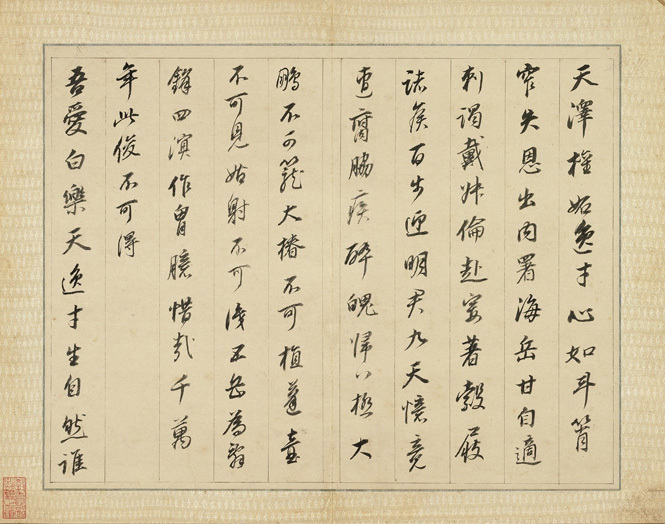 天澤權妬逸才心如斗筲
窄失恩出内署海岳甘自適
刺謁戴接倫赴宴著縠屐
諸侯百步迎明君九天憶竟
遭腐脇疾醉魄歸八極大
鵬不可籠大椿不可植蓬壺
不可見姑射不可識五岳為辭
鋒四溟作胷臆惜哉千萬
年此俊不可得
吾愛白樂天逸才生自然誰